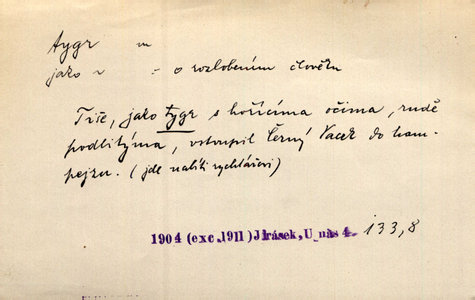 tygr m
jako v : o rozlobeném člověku
Tiše, jako tygr s hořícíma očima, rudě
podlitýma, vstoupil Černý Vacek do ham-
pejzu. (jde nabíti rychtářovi)
1904 (exc. 1911) Jirásek, U nás 4. 133,8